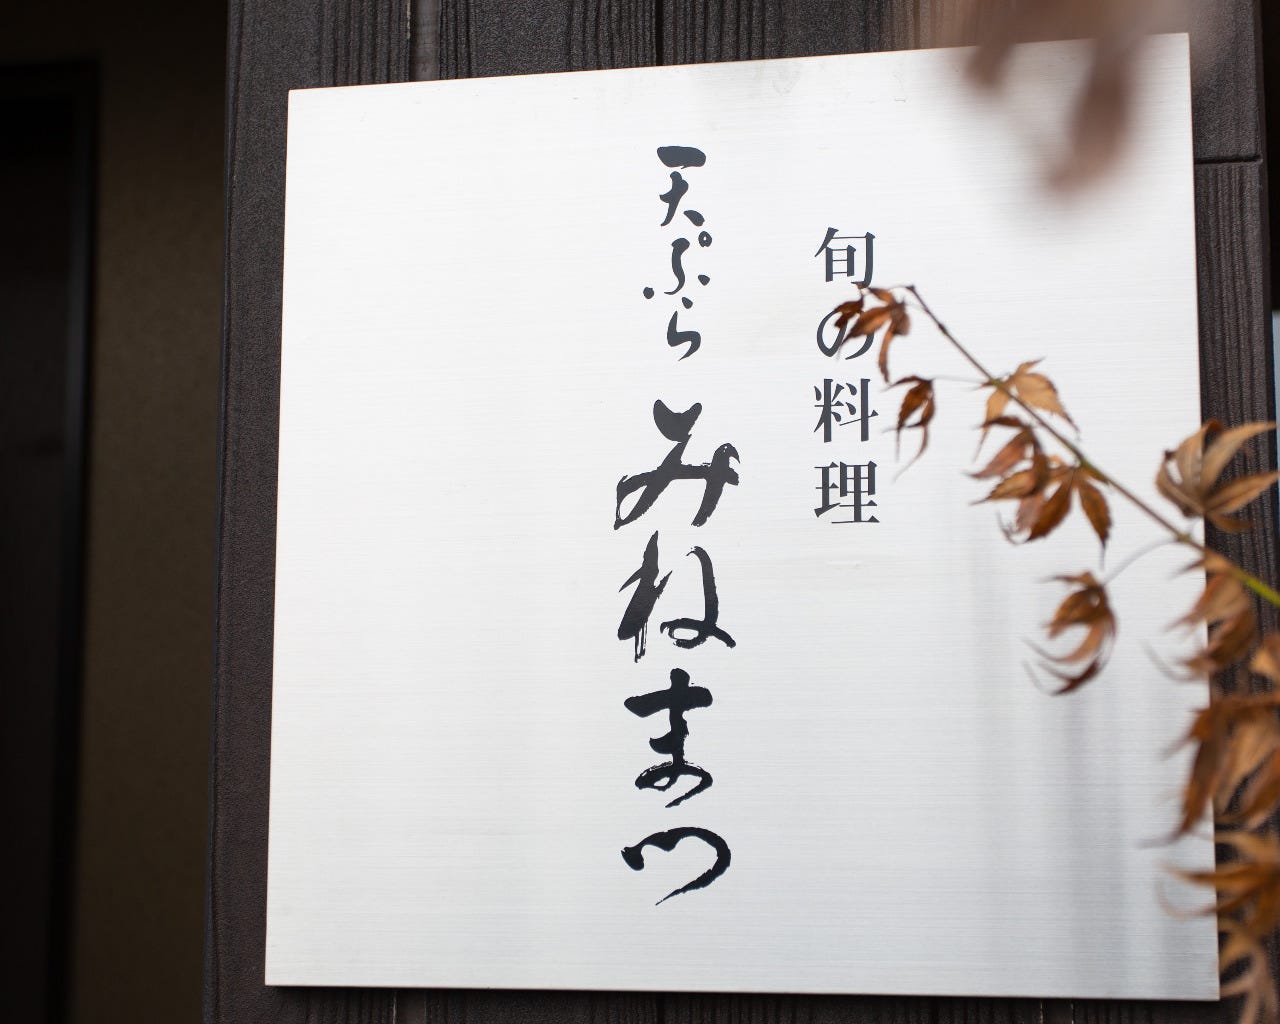 旬の料理
天ぷら みねまつ